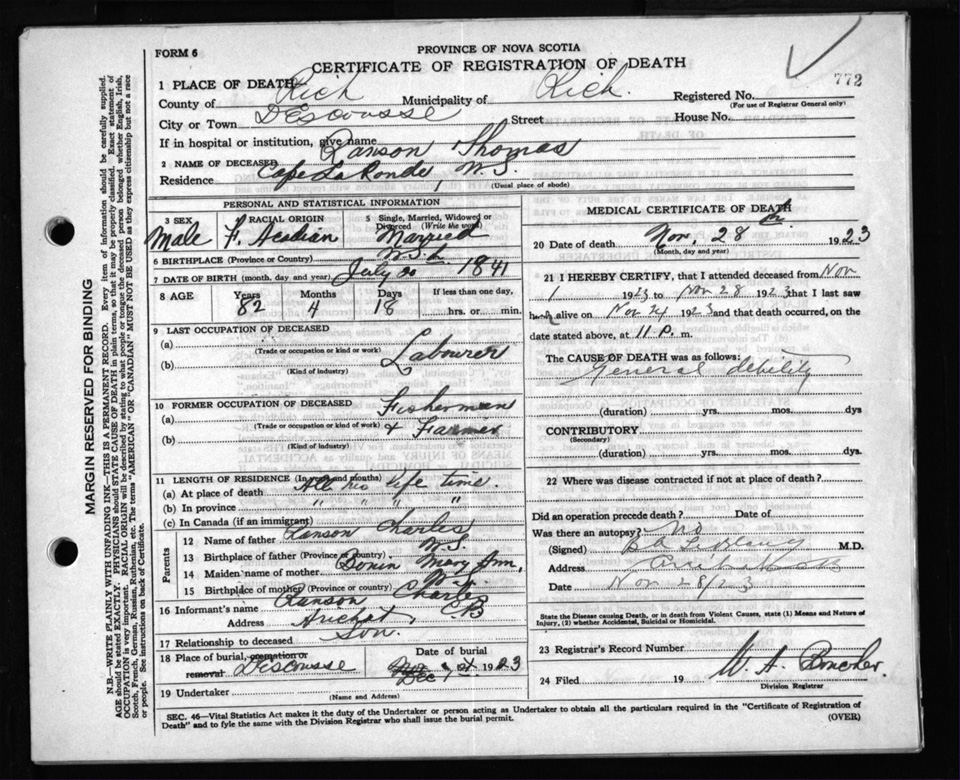 FORM 6
PROVINCE OF NOVA SCOTIA
CERTIFICATE OF REGISTRATION OF DEATH
772
1 PLACE OF DEATH
County of Rich Municipality of Rich. Registered No.
(For use of Registrar General only)
City or Town D'Escousse Street House No.
If in hospital or institution, give name
2 NAME OF DECEASED Ranson Thomas
Residence Cape La Ronde, N.S.
(Usual place of abode)
PERSONAL AND STATISTICAL INFORMATION
3 SEX Male
RACIAL ORIGIN F. Acadian
5 Single, Married, Widowed or Divorced (Write the word) Married
6 BIRTHPLACE (Province or Country) N.S.
7 DATE OF BIRTH (month, day and year) July 1841
8 AGE Years Months Days If less than one day,
82 4 18 hrs. or min.
9 LAST OCCUPATION OF DECEASED
(a)
(Trade or occupation or kind or work)
(b) Labourer
(Kind of industry)
10 FORMER OCCUPATION OF DECEASED
(a) Fisherman
(Trade or occupation or kind or work)
(b) & Farmer
(Kind of industry)
11 LENGTH OF RESIDENCE (In years and months)
(a) At place of death All his life time.
(b) In province " " " "
(c) In Canada (if an immigrant)
Parents
12 Name of father Ranson Charles
13 Birthplace of father (Province or country) N.S.
14 Maiden name of mother Mary Ann,
15 Birthplace of mother (Province or country) N.S.
16 Informant's name Ranson Charles
Address Arichat, CB
17 Relationship to deceased Son.
18 Place of burial, cremation or removal Descousse
Date of burial
Dec 1st 1923
19 Undertaker
(Name and Address)
MEDICAL CERTIFICATE OF DEATH
20 Date of death Nov, 28th 1923
(Month, day and year)
21 I HEREBY CERTIFY, that I attended deceased from Nov
1 1923 to Nov 28 1923, that I last saw
h alive on Nov 24 1923 and that death occurred, on the
date stated above, at 11 P. m.
The CAUSE OF DEATH was as follows:
General debility
(duration) yrs. mos. dys
CONTRIBUTORY
(Secondary)
(duration) yrs. mos. dys.
22 Where was disease contracted if not at place of death?
Did an operation precede death? Date of
Was there an autopsy? No
(Signed) M.D.
Address
Date Nov 28/23
State the Disease causing Death, or in death from Violent Causes, state (1) Means and Nature of
Injury, (2) whether Accidental, Suicidal or Homicidal.
23 Registrar's Record Number
24 Filed 19 W. A. Boucher
Division Registrar
SEC. 46—Vital Statistics Act makes it the duty of the Undertaker or person acting as Undertaker to obtain all the particulars required in the "Certificate of Registration of
Death" and to fyle the same with the Division Registrar who shall issue the burial permit.
(OVER)
MARGIN RESERVED FOR BINDING
N.B—WRITE PLAINLY WITH UNFADING INK—THIS IS A PERMANENT RECORD. Every item of information should be carefully supplied.
AGE should be stated EXACTLY. PHYSICIANS should STATE CAUSE OF DEATH in plain terms, so that it may be properly classified. Exact statement of
OCCUPATION is very important. RACIAL ORIGIN will be described by stating to what people or tongue the deceased person belonged whether English, Irish,
Scotch, French, German, Russian, Ruthenian, etc. The terms "AMERICAN" OR "CANADIAN" MUST NOT BE USED as they express citizenship but not a race
or people. See instructions on back of Certificate.